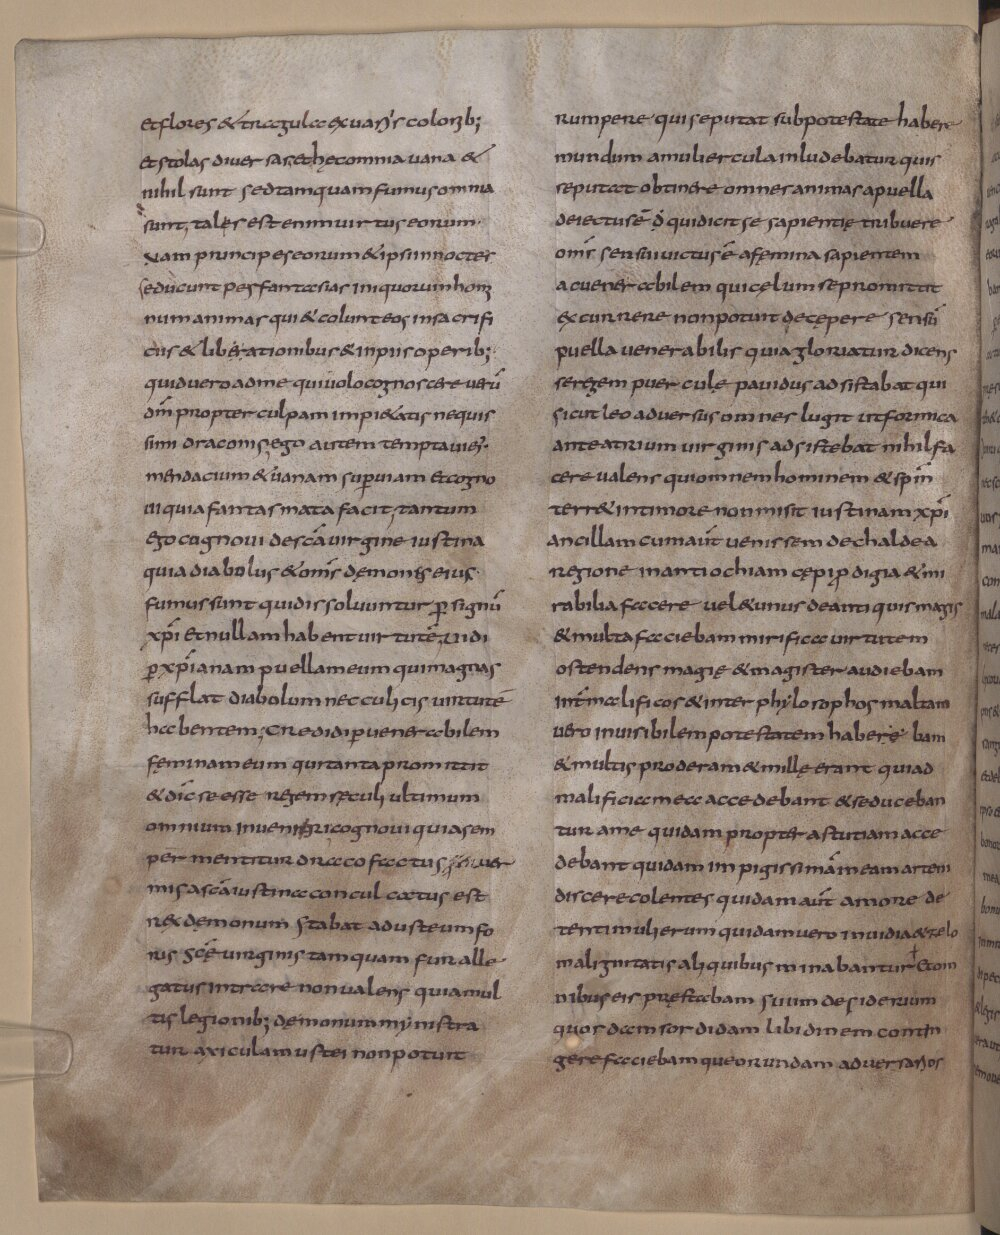 et flores & tragulae ex uariis colorib;
et stolas diuersas et hęc omnia uana &
nihil sunt sed tamquam fumus omnia
sunt, tales est enim uirtus eorum.
Nam principes eorum & ipsi in noctes
seducunt per fantasias iniquorum homi
num animas qui & colunt eos in sacrifi
ciis & liberationibus & inpiis operib;
quid uero ad me qui uolo cognoscere uerū
dm̄ propter culpam impietatis nequis
simi draconis, ego autem temptaui eis
mendacium & uanam superuiam et cogno
ui quia fantasmata facit, tantum
Ego cognoui de scā uirgine iustina
quia diabolus & om̄s dęmones eius
fumus sunt qui dissoluuntur ꝑ signū
xp̄i et nullam habent uirtutē, uidi
ꝑ xp̄ianam puellam eum qui magnas
sufflat diabolum nec culicis uirtutē
habentem, Credidi ꝑ uenerabilem
feminam eum qui tanta promittit
& dīc se esse regem sęculi ultimum
omnium inueni & ricognoui quia sem
per mentitur draco factus uer
mis a scā iustina conculcatus est
rex demonum stabat ad usteum fo
ris scę̄ uirginis tamquam fur alle
gatus intrare non ualens quia mul
tis legionib; demonum mynistra
tur axiculam ustei non potuit
rumpere qui se putat sub potestate habere
mundum a muliercula inludebatur quis
se putat obtinere omnes animas a puella
deiectus ē qui dicit se sapientię tribuere
om̄s sensu uictus ē a fęmina sapientem
a cuenerabilem qui cęlum se promittit
excurrere non potuit decepere sensū
puella uenerabilis quia gloriatur dicens
se regem puerculę pauidus adsistabat qui
sicut leo aduersus omnes lugit ut formica
ante atrium uirginis adsistebat nihil fa
cere ualens qui omnem hominem & sp̄m
terr& in timore non misit iustinam xp̄i
ancillam cum aūt uenissem de chaldea
regione in antiochiam cępi ꝓdigia & mi
rabilia facere uel & unus de antiquis magis
& multa faciebam mirifica uirtutem
ostendens magię & magister audiebam
int̄ malificos & inter phylosophos maltam
uero inuisibilem potestatem habere bam
& multis proderam & mille erant qui ad
malificia mea accedebant & seduceban
tur a me quidam propter astutiam acce
debant quidam impigissimā meam artem
discere colentes quidam aūt amore de
tenti mulierum quidam uero inuidia & zelo
malignitatis aliquibus minabantur Et om
nibus eis pręstabam suum desiderium
quos dam sordidam libidinem contin
gere faciebam queorundam aduersarios